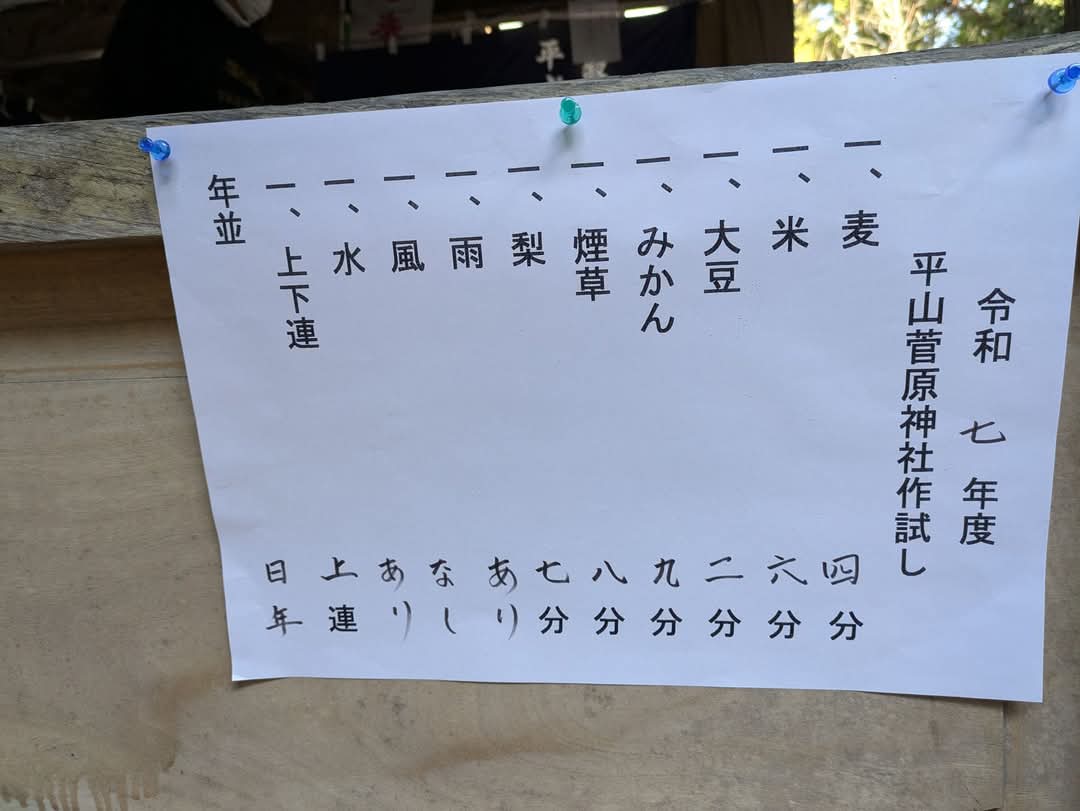 令和 七 年度
平山菅原神社作試し
一、麦 四分
一、米 六分
一、大豆 二分
一、みかん 九分
一、煙草 八分
一、梨 七分
一、雨 あり
一、風 なし
一、水 あり
一、上下連 上連
年並 日年
平